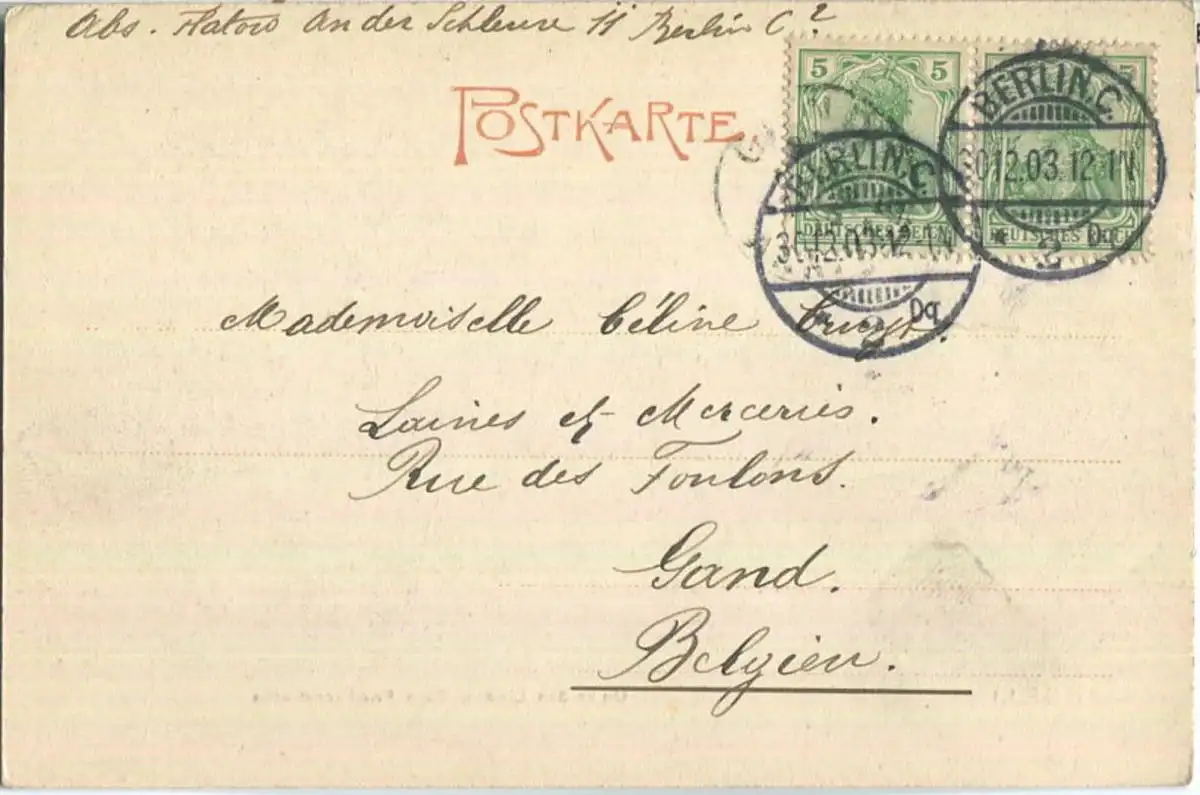 Abs. Flatow An der Schleuse 11 Berlin C2
POSTKARTE
5 5
DEUTSCHES REICH
5
DEUTSCHES REICH
BERLIN.C.
30.12.03.12-1N
* 2 Dq
BERLIN.C.
30.12.03.12-1N
* 2 Dq
Mademoiselle Céline
Laines et Merceries.
Rue des Foulons.
Gand.
Belgien.